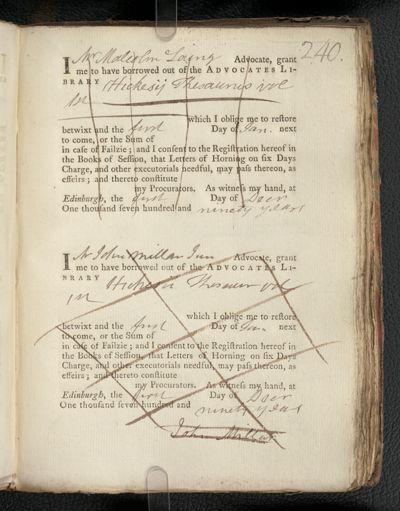 240.
I Mr Malcolm Laing Advocate, grant
me to have borrowed out of the ADVOCATES LI-
BRARY Hickesij Thesaurus vol
1st
which I oblige me to reſtore
betwixt and the first Day of Jan. next
to come, or the Sum of
in caſe of Failzie; and I conſent to the Regiſtration hereof in
the Books of Seſſion, that Letters of Horning on ſix Days
Charge, and other executorials needful, may paſs thereon, as
effeirs; and thereto conſtitute
my Procurators. As witneſs my hand, at
Edinburgh, the first Day of Decr
One thouſand ſeven hundred and ninety years
I Mr John Millar Junr Advocate, grant
me to have borrowed out of the ADVOCATES LI-
BRARY Hickesii Thesaur vol
1st
which I oblige me to reſtore
betwixt and the first Day of Jan next
to come, or the Sum of
in caſe of Failzie; and I conſent to the Regiſtration hereof in
the Books of Seſſion, that Letters of Horning on ſix Days
Charge, and other executorials needful, may paſs thereon, as
effeirs; and thereto conſtitute
my Procurators. As witneſs my hand, at
Edinburgh, the first Day of Decr
One thouſand ſeven hundred and ninety years
John Millar